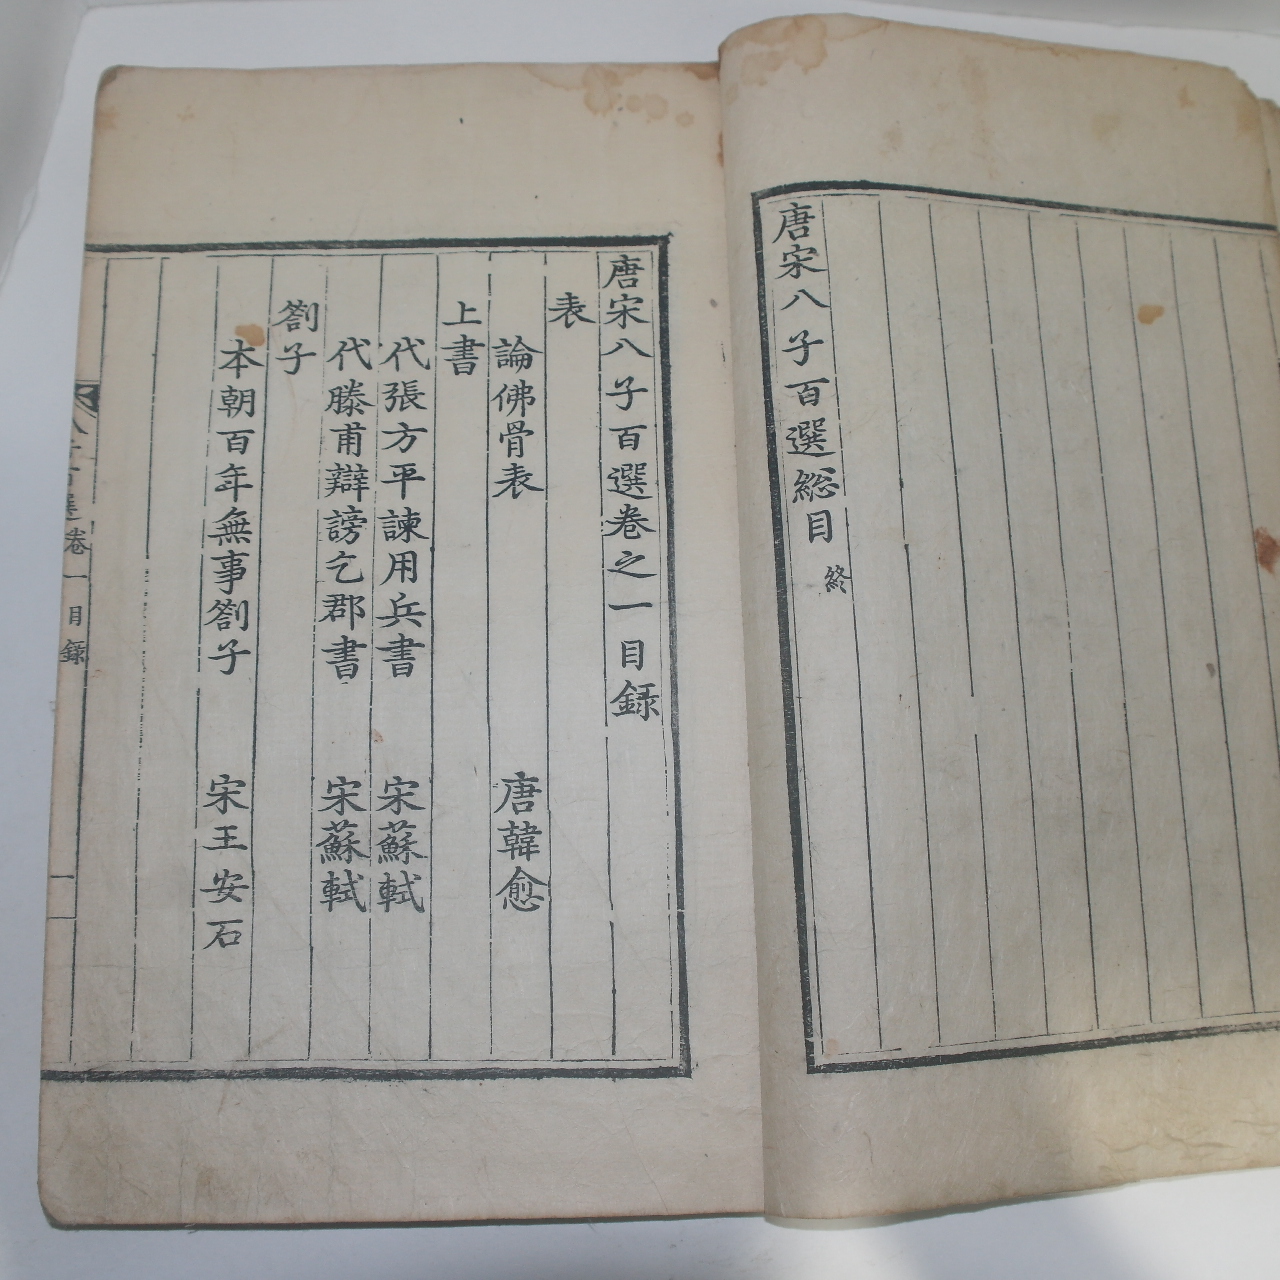 唐宋八子百選總目 終
唐宋八子百選卷之一目録
表
論佛骨表 唐韓愈
上書
代張方平諫用兵書 宋蘇軾
代滕甫辯謗乞郡書 宋蘇軾
劄子
本朝百年無事劄子 宋王安石
八子百選卷一 目録 一